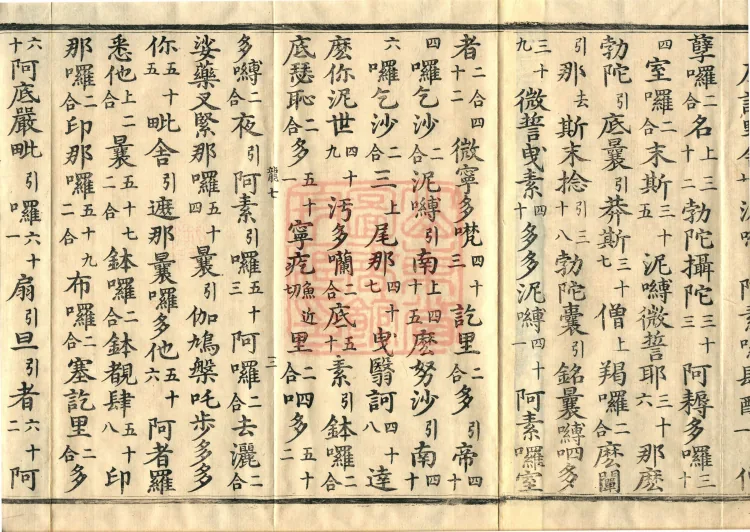 孽囉二合名上三十二勃陀攝陀三十三阿耨多囉三十
四室囉二合末斯三十五泥嚩微誓耶三十六那麼
勃陀引底曩引莽斯三十七僧上羯囉二合麼
引那去斯末捻引三十八勃陀囊引銘曩嚩呬多
三十九微誓曳素四十多多泥嚩四十一阿素囉室
者二合四十二微寧多㘑四十三訖里二合多引帝四十
四囉乞沙二合泥嚩引南上四十五麼努沙引南四十
六囉乞沙二合三上尾那四十七曳翳訶四十八達
麼你泥世四十九汚多囒二合底五十素引鉢囉二合
底瑟恥二合多五十一寧疙魚近切里二合呬多五十二
龍七 三
多嚩二合夜引阿素引囉五十三阿囉二合去灑二合
娑藥叉緊那囉五十四曩引伽鳩槃吒步多多
你五十五毗舍引遮那曩囉多他五十六阿者羅
悉他上二合曩五十七鉢囉二合鉢覩肆五十八印
那囉二合印那囉五十九二合布囉二合塞訖里二合多
六十阿底嚴毗引囉六十一扇引旦引者六十二阿